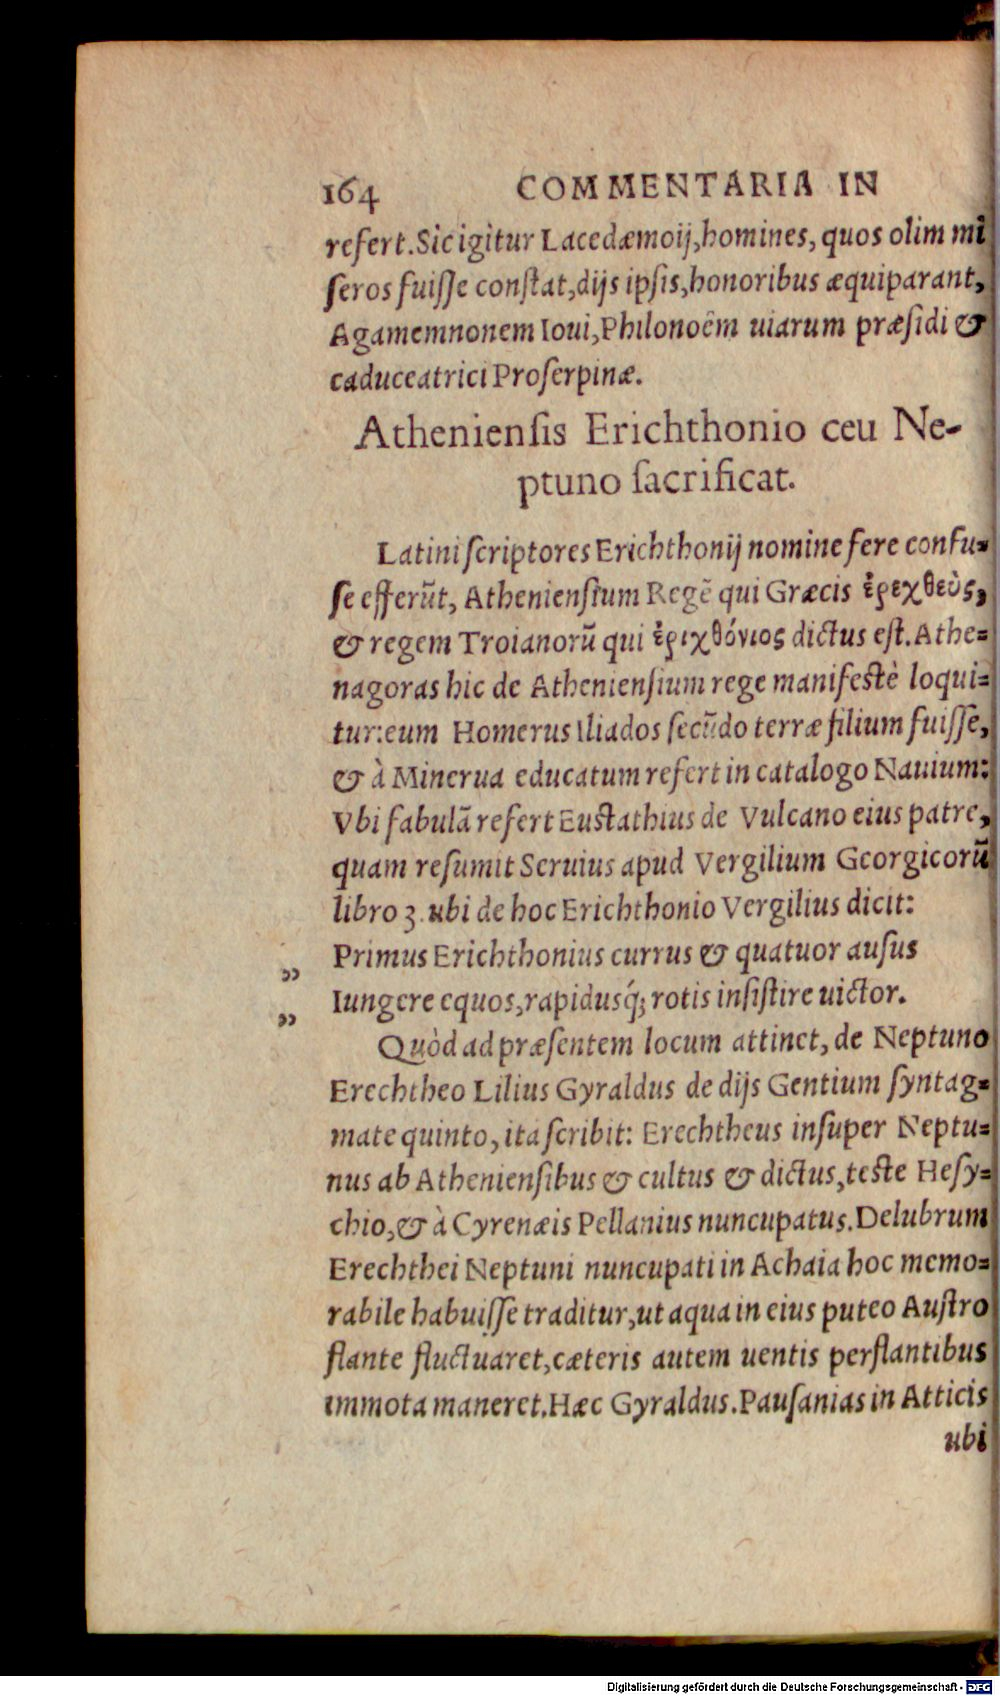 164 COMMENTARIA IN
refert. Sic igitur Lacedæmoij, homines, quos olim mi
ſeros fuiſſe conſtat, dijs ipſis, honoribus æquiparant,
Agamemnonem Ioui, Philonoëm uiarum præſidi &
caduceatrici Proſerpinæ.
Athenienſis Erichthonio ceu Ne-
ptuno ſacrificat.
Latini ſcriptores Erichthonij nomine fere confu-
ſe efferũt, Athenienſium Regẽ qui Græcis ἐρεχθεὺς,
& regem Troianorũ qui ἐριχθόνιος dictus eſt. Athe-
nagoras hic de Athenienſium rege manifeſtè loqui-
tur: eum Homerus Iliados ſecũdo terræ filium fuiſſe,
& à Minerua educatum refert in catalogo Nauium:
Vbi fabulã refert Euſtathius de Vulcano eius patre,
quam reſumit Seruius apud Vergilium Georgicorũ
libro 3. ubi de hoc Erichthonio Vergilius dicit:
„ Primus Erichthonius currus & quatuor auſus
„ Iungere equos, rapidusq́; rotis inſiſtire uictor.
Quòd ad præſentem locum attinet, de Neptuno
Erechtheo Lilius Gyraldus de dijs Gentium ſyntag-
mate quinto, ita ſcribit: Erechtheus inſuper Neptu-
nus ab Athenienſibus & cultus & dictus, teſte Heſy-
chio, & à Cyrenæis Pellanius nuncupatus. Delubrum
Erechthei Neptuni nuncupati in Achaia hoc memo-
rabile habuiſſe traditur, ut aqua in eius puteo Auſtro
flante fluctuaret, cæteris autem uentis perflantibus
immota maneret. Hæc Gyraldus. Pauſanias in Atticis
ubi
Digitalisierung gefördert durch die Deutsche Forschungsgemeinschaft - DFG